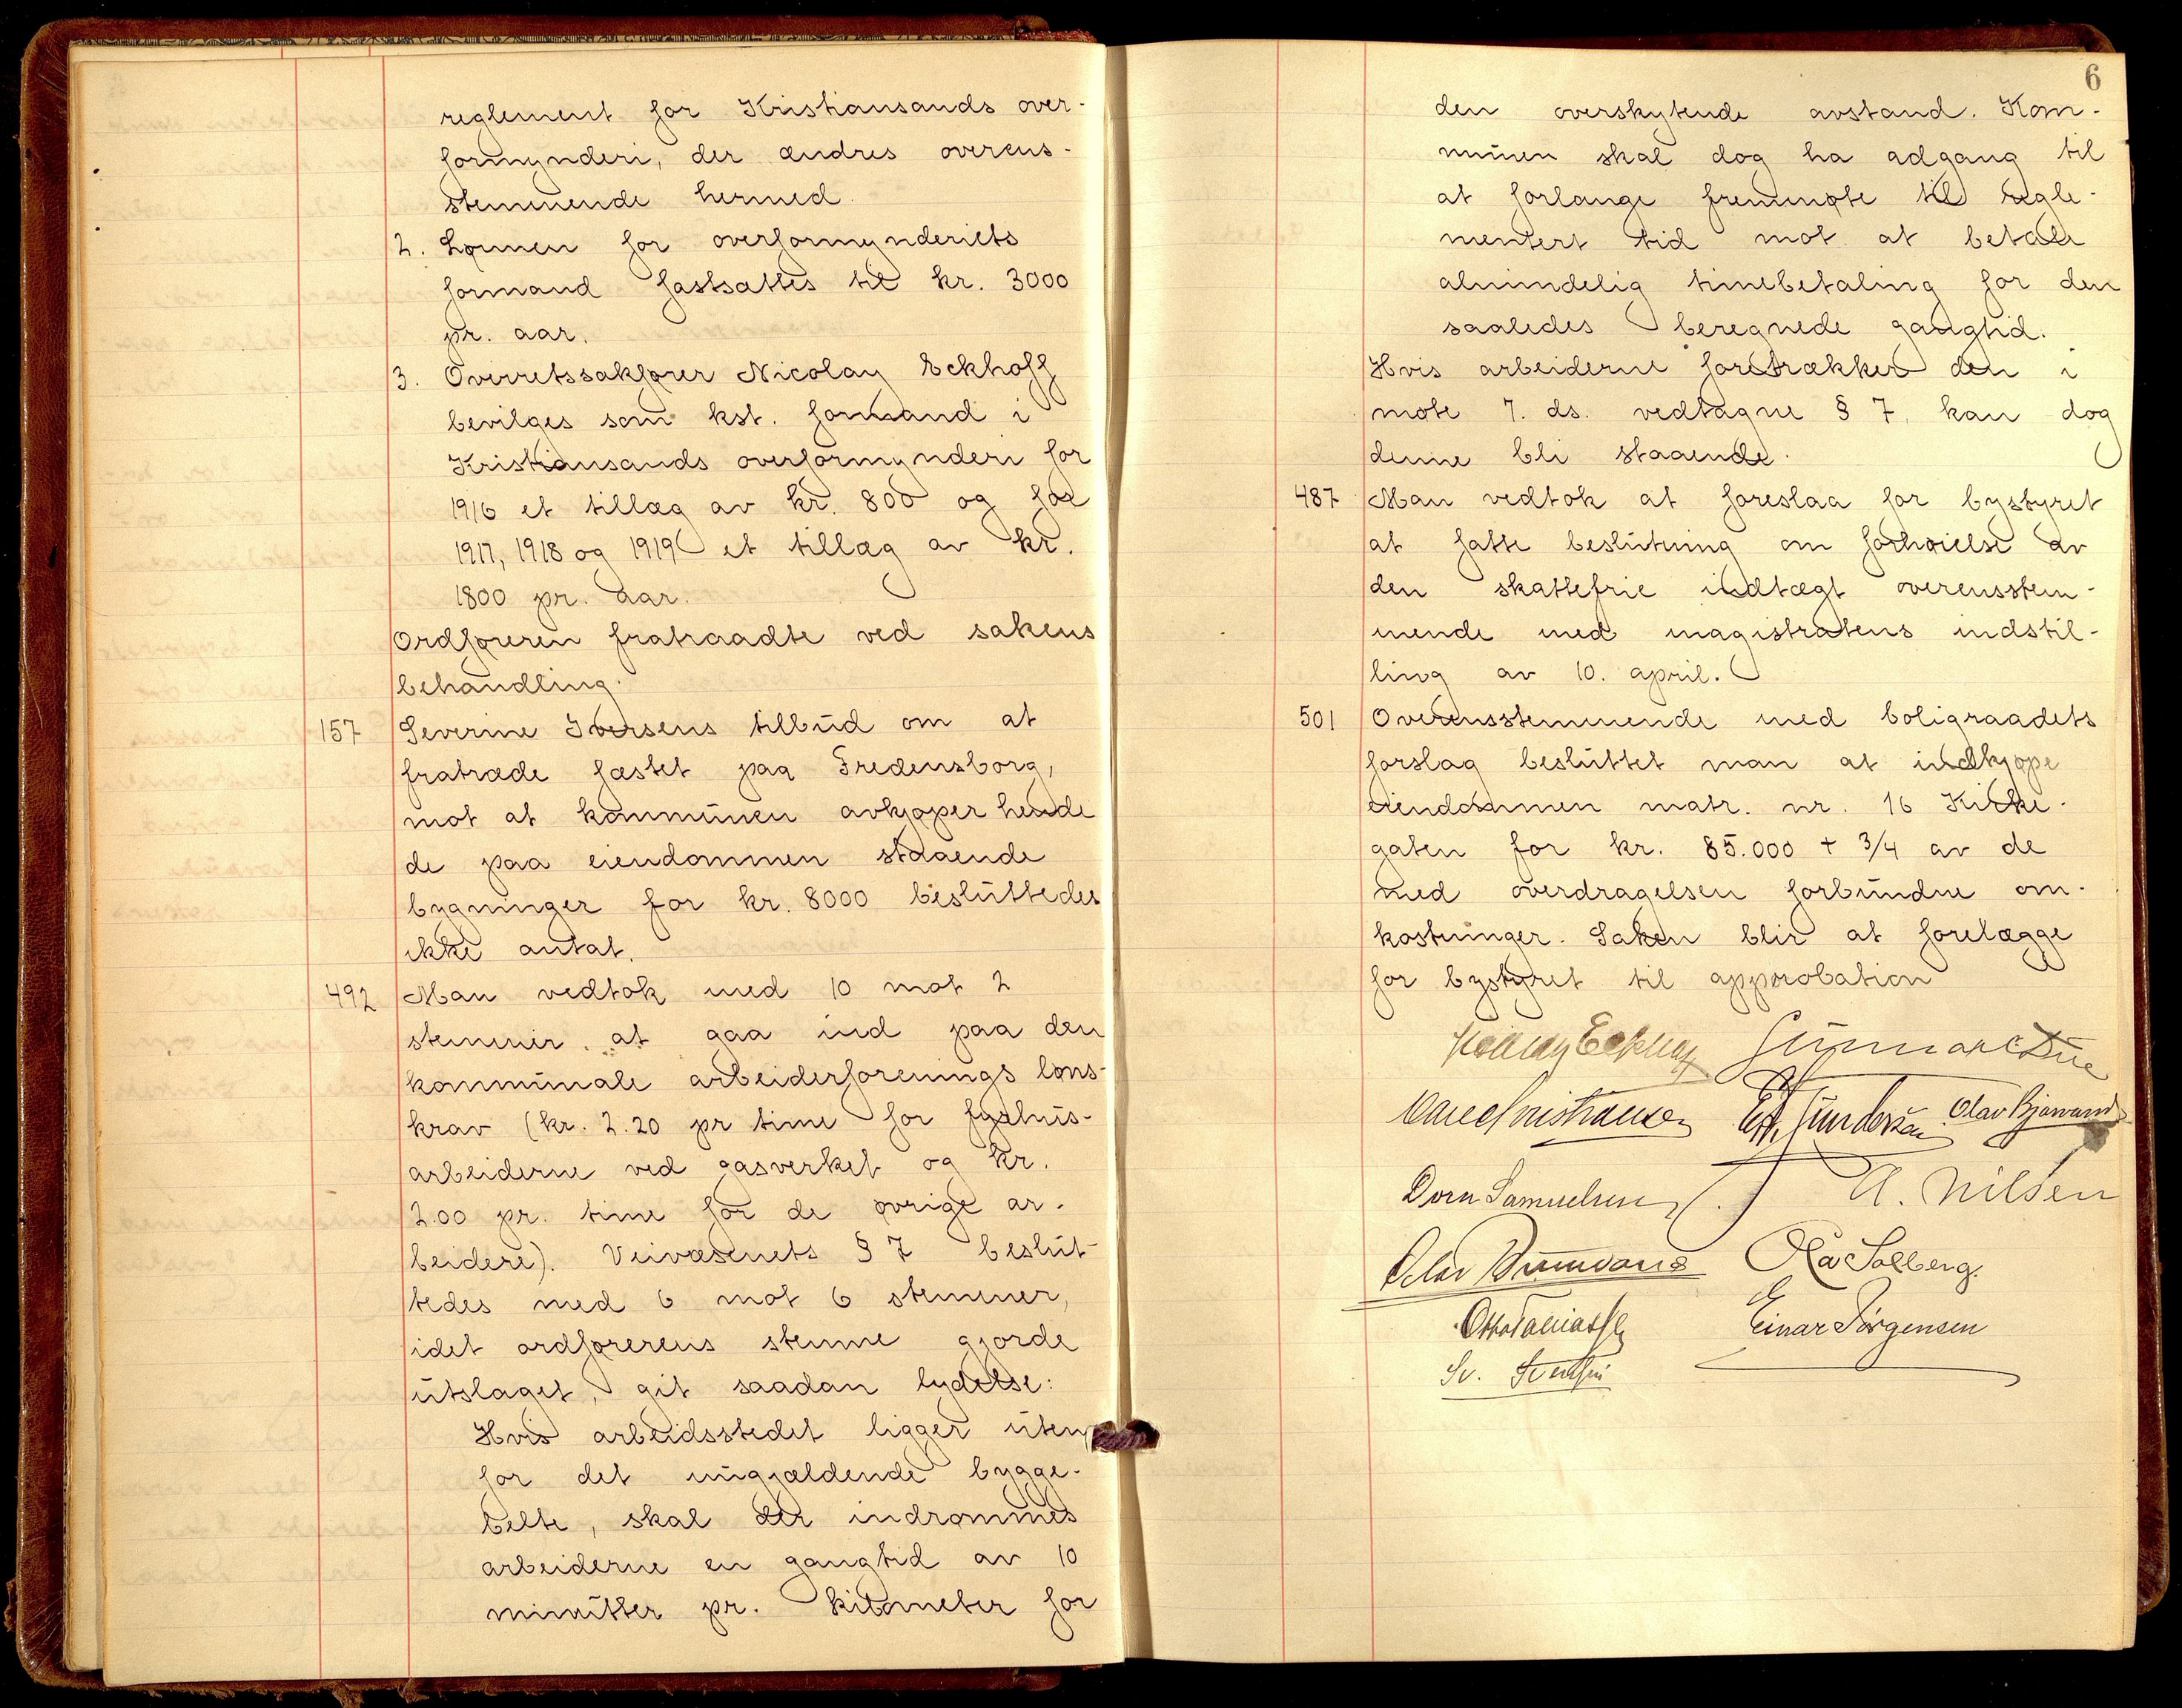 reglement for Kristiansands over-
formynderi, der ændres overens-
stemmende hermed.
2. Lønnen for overformynderiets
formand fastsættes til kr. 3000
pr. aar.
3. Overretssakfører Nicolay Eckhoff
bevilges som kst. formand i
Kristiansands overformynderi for
1916 et tillæg av kr. 800 og for
1917, 1918 og 1919 et tillæg av kr.
1800 pr. aar.
Ordføreren fratraadte ved sakens
behandling.
157 Severine Iversens tilbud om at
fratræde fæstet paa Fredensborg,
mot at kommunen avkjøper hende
de paa eiendommen staaende
bygninger for kr. 8000 besluttedes
ikke antat.
492 Man vedtok med 10 mot 2
stemmer at gaa ind paa den
kommunale arbeiderforenings løns-
krav (kr. 2.20 pr time for fyrhus-
arbeiderne ved gasverket og kr.
2.00 pr. time for de øvrige ar-
beidere). Veivæsenets § 7 beslut-
tedes med 6 mot 6 stemmer,
idet ordførerens stemme gjorde
utslaget, git saadan lydelse:
Hvis arbeidsstedet ligger uten
for det nugjældende bygge-
belte, skal der indrømmes
arbeiderne en gangtid av 10
minutter pr. kilometer for
6
den overskytende avstand. Kom-
munen skal dog ha adgang til
at forlange fremmøte til regle-
mentert tid mot at betale
almindelig timebetaling for den
saaledes beregnede gangtid.
Hvis arbeiderne foretrækker den i
møte 7. ds. vedtagne § 7, kan dog
denne bli staaende.
487 Man vedtok at foreslaa for bystyret
at fatte beslutning om forhøielse av
den skattefrie indtægt overensstem-
mende med magistratens indstil-
ling av 10. april.
501 Overensstemmende med boligraadets
forslag besluttet man at indkjøpe
eiendommen matr. nr. 16 Kirke-
gaten for kr. 85.000 + 3/4 av de
med overdragelsen forbundne om-
kostninger. Saken blir at forelægge
for bystyret til approbation
Nicolay Eckhoff Gunnar Due
Christiansen Gundersen Olav Bjørvand
Dorn Samuelsen A. Nilsen
Olav Ola Solberg.
Otto Einar Jørgensen
Sv. Svendsen